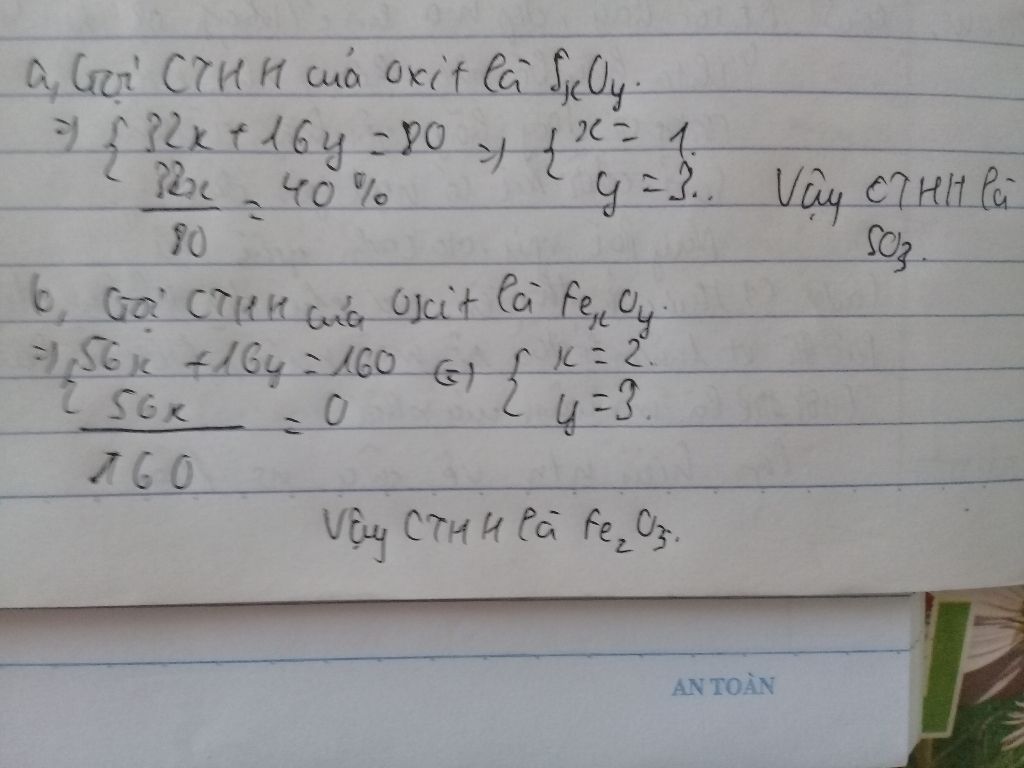 a, Gọi CTHH của oxit là SxOy.
=> { 32x + 16y = 80 => { x = 1.
32x/80 = 40% y = 3.. Vậy CTHH là
SO3.
b, Gọi CTHH của oxit là FexOy.
=> { 56x + 16y = 160 <=> { x = 2.
56x/160 = 0 y = 3.
Vậy CTHH là Fe2O3.
AN TOÀN